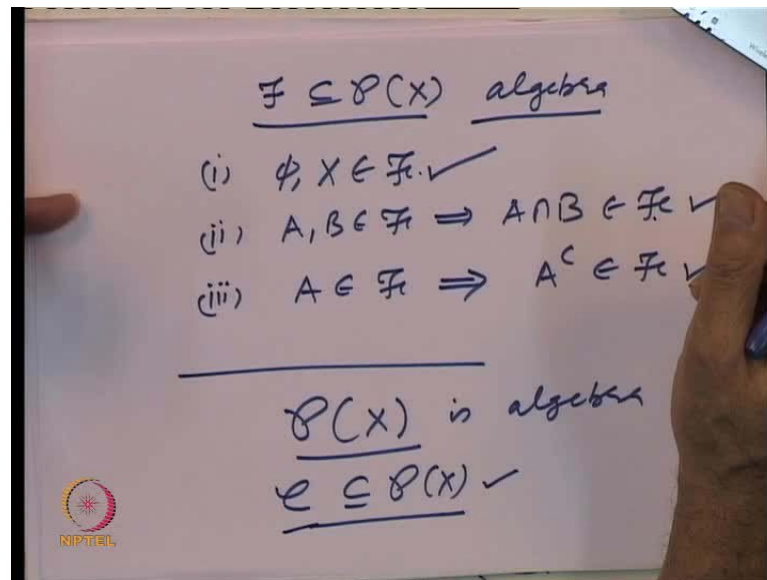 ℱ ⊆ 𝒫(X) algebra
(i) φ, X ∈ ℱ. ✓
(ii) A, B ∈ ℱ ⟹ A∩B ∈ ℱ ✓
(iii) A ∈ ℱ ⟹ A^C ∈ ℱ ✓
𝒫(X) is algebra
𝒞 ⊆ 𝒫(X) ✓
NPTEL